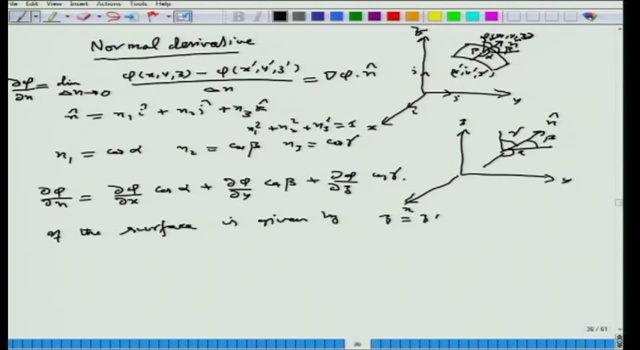 File Edit View Insert Actions Tools Help
Normal derivative
∂φ/∂n = lim Δn→0 (φ(x,y,z) − φ(x',y',z'))/Δn = ∇φ·n̂
n̂ = n₁ î + n₂ ĵ + n₃ k̂
n₁² + n₂² + n₃² = 1
n₁ = cosα n₂ = cosβ n₃ = cosγ
∂φ/∂n = ∂φ/∂x cosα + ∂φ/∂y cosβ + ∂φ/∂z cosγ.
If the surface is given by z = z,
z
y
x
φ(x,y,z)
(x',y',z')
z
n̂
γ
β
α
y
x
26 / 61
26